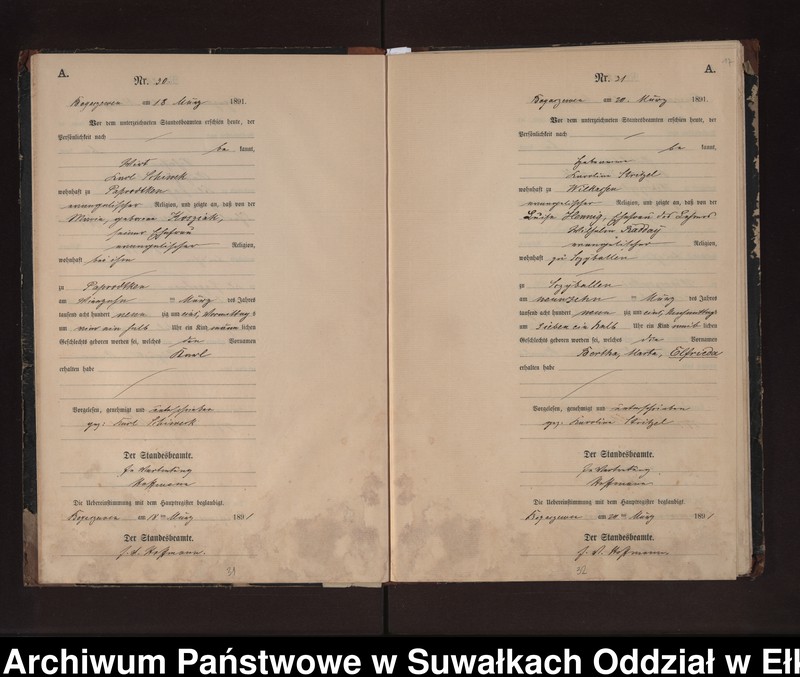 A.
Nr. 30
am 18 März 1891.
Vor dem unterzeichneten Standesbeamten erschien heute, der
Persönlichkeit nach
be kannt,
Wirt
Karl
wohnhaft zu Paprodtken
evangelischer Religion, und zeigte an, daß von der
Marie, geborene
seiner Ehefrau
evangelischer Religion,
wohnhaft bei ihm
zu Paprodtken
am vierzehn ten März des Jahres
tausend acht hundert neun zig und eins, Vormittag s
um ein halb Uhr ein Kind männ lichen
Geschlechts geboren worden sei, welches den Vornamen
Karl
erhalten habe
Vorgelesen, genehmigt und unterschrieben
gez: Karl
Der Standesbeamte.
In Vertretung
Hoffmann
Die Uebereinstimmung mit dem Hauptregister beglaubigt.
am 18ten März 1891
Der Standesbeamte.
J. V. Hoffmann.
31
A.
17
Nr. 31
am 20. März 1891.
Vor dem unterzeichneten Standesbeamten erschien heute, der
Persönlichkeit nach
be kannt,
Hebamme
Karoline Stritzel
wohnhaft zu Wilkassen
evangelischer Religion, und zeigte an, daß von der
Luise Hennig, Ehefrau des
Wilhelm Rattay
evangelischer Religion,
wohnhaft zu Szyballen
zu Szyballen
am neunzehn ten März des Jahres
tausend acht hundert neun zig und eins, Nachmittags
um sieben ein halb Uhr ein Kind weib lichen
Geschlechts geboren worden sei, welches die Vornamen
Bertha, Marta, Elfrieda
erhalten habe
Vorgelesen, genehmigt und unterschrieben
gez: Karoline Stritzel
Der Standesbeamte.
In Vertretung
Hoffmann
Die Uebereinstimmung mit dem Hauptregister beglaubigt.
am 20ten März 1891
Der Standesbeamte.
J. V. Hoffmann
32
Archiwum Państwowe w Suwałkach Oddział w Ełk